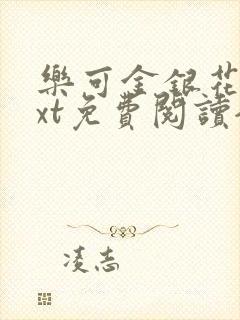 樂可金銀花
xt免費閱讀
凌志